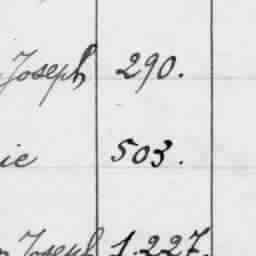 Joseph 290.
ie 503.
Joseph 1.227.